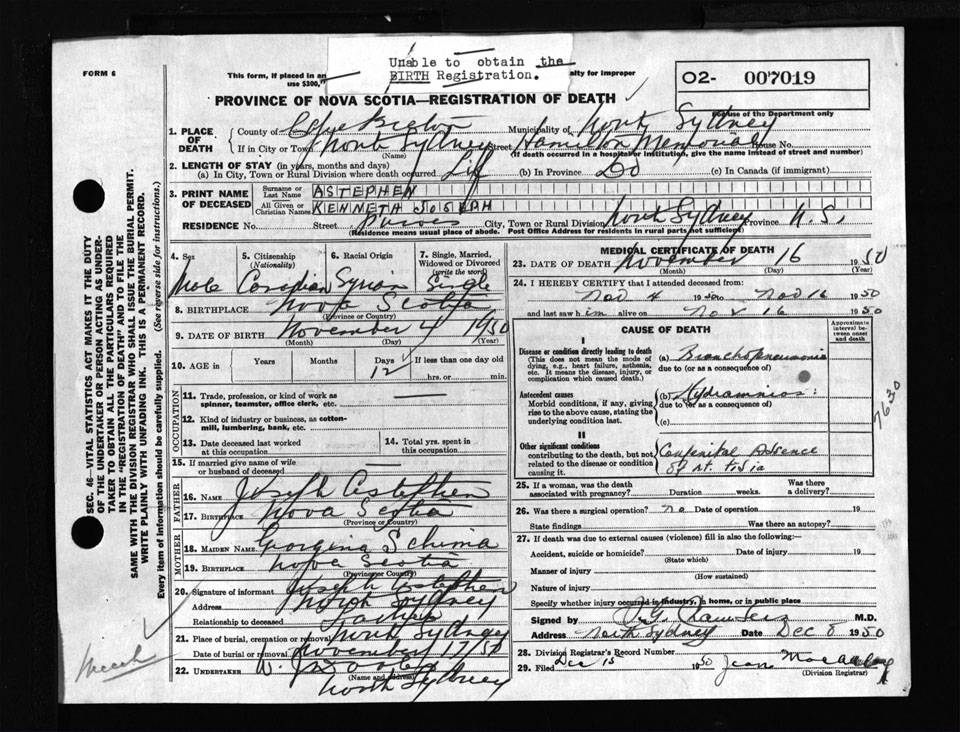 Unable to obtain the
BIRTH Registration.
FORM 6
This form, if placed in an
use $300,
alty for improper
O2- 007019
PROVINCE OF NOVA SCOTIA—REGISTRATION OF DEATH
use of the Department only
1. PLACE OF DEATH
County of Cape Breton Municipality of North Sydney
If in City or Town North Sydney Street Hamilton Memorial House No.
(Name) (If death occurred in a hospital or institution, give the name instead of street and number)
2. LENGTH OF STAY (in years, months and days)
(a) In City, Town or Rural Division where death occurred Life (b) In Province Do (c) In Canada (if immigrant)
3. PRINT NAME OF DECEASED
Surname or Last Name ASTEPHEN
All Given or Christian Names KENNETH JOSEPH
RESIDENCE No. Street Purves City, Town or Rural Division North Sydney Province N.S.
(Residence means usual place of abode. Post Office Address for residents in rural parts not sufficient)
4. Sex
Male
5. Citizenship (Nationality)
Canadian
6. Racial Origin
Syrian
7. Single, Married, Widowed or Divorced (write the word)
Single
8. BIRTHPLACE Nova Scotia
(Province or Country)
9. DATE OF BIRTH November 4 1950
(Month) (Day) (Year)
10. AGE in Years Months Days 12 If less than one day old
hrs. or min.
OCCUPATION
11. Trade, profession, or kind of work as
spinner, teamster, office clerk, etc.
12. Kind of industry or business, as cotton-
mill, lumbering, bank, etc.
13. Date deceased last worked
at this occupation
14. Total yrs. spent in
this occupation
15. If married give name of wife
or husband of deceased
FATHER
16. NAME Joseph Astephen
17. BIRTHPLACE Nova Scotia
(Province or Country)
MOTHER
18. MAIDEN NAME Georgina Schima
19. BIRTHPLACE Nova Scotia
(Province or Country)
20. Signature of informant Joseph Astephen
Address North Sydney
Relationship to deceased Father
21. Place of burial, cremation or removal North Sydney
Date of burial or removal November 17/50
22. UNDERTAKER W. J.
(Name and address)
North Sydney
MEDICAL CERTIFICATE OF DEATH
23. DATE OF DEATH November 16 1950
(Month) (Day) (Year)
24. I HEREBY CERTIFY that I attended deceased from:
Nov 4 1950 to Nov 16 1950
and last saw him alive on Nov 16 1950
CAUSE OF DEATH
Approximate interval between onset and death
I
Disease or condition directly leading to death
(This does not mean the mode of
dying, e.g., heart failure, asthenia,
etc. It means the disease, injury, or
complication which caused death.)
(a) Bronchopneumonia
due to (or as a consequence of)
Antecedent causes
Morbid conditions, if any, giving
rise to the above cause, stating the
underlying condition last.
(b) Hydramnios
due to (or as a consequence of)
(c)
7630
II
Other significant conditions
contributing to the death, but not
related to the disease or condition
causing it.
Congenital Absence
of rt. tibia
25. If a woman, was the death
associated with pregnancy? Duration weeks. Was there
a delivery?
26. Was there a surgical operation? no Date of operation 19
State findings Was there an autopsy?
27. If death was due to external causes (violence) fill in also the following:—
Accident, suicide or homicide? Date of injury 19
(State which)
Manner of injury
(How sustained)
Nature of injury
Specify whether injury occurred in industry, in home, or in public place
Signed by M.D.
Address North Sydney Date Dec 8 1950
28. Division Registrar's Record Number
29. Filed Dec 15 1950 Jean
(Division Registrar)
SEC. 46—VITAL STATISTICS ACT MAKES IT THE DUTY
OF THE UNDERTAKER OR PERSON ACTING AS UNDER-
TAKER TO OBTAIN ALL THE PARTICULARS REQUIRED
IN THE "REGISTRATION OF DEATH" AND TO FILE THE
SAME WITH THE DIVISION REGISTRAR WHO SHALL ISSUE THE BURIAL PERMIT.
WRITE PLAINLY WITH UNFADING INK. THIS IS A PERMANENT RECORD.
Every item of information should be carefully supplied. (See reverse side for instructions.)